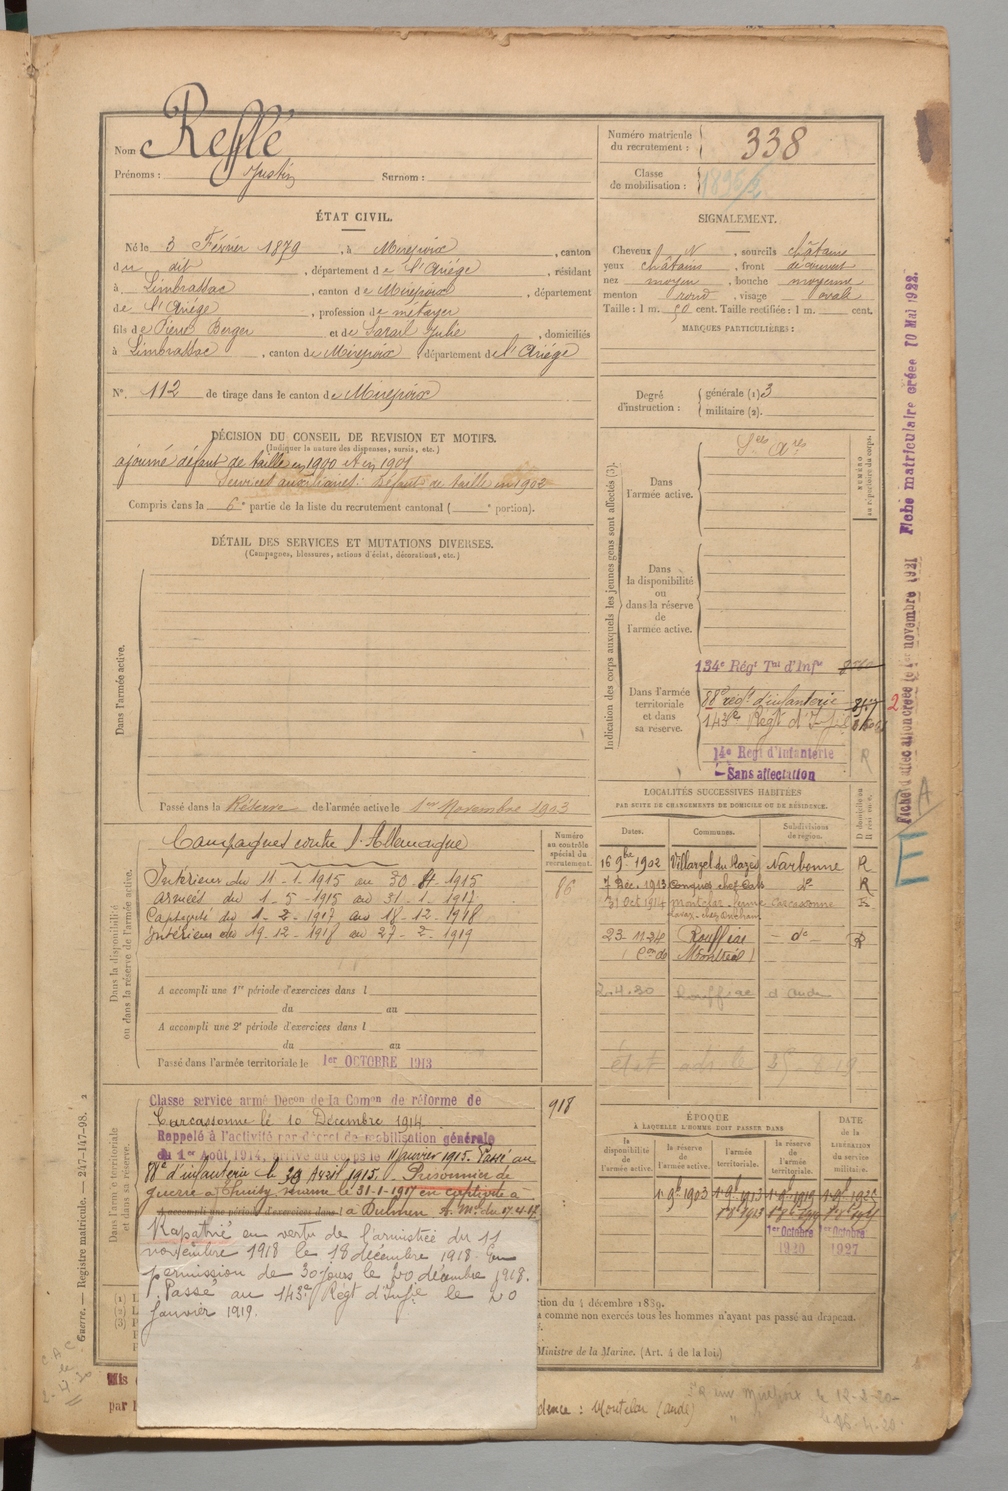 Nom Rellé
Prénoms : Justin Surnom :
Numéro matricule du recrutement : 338
Classe de mobilisation : 1896/2
ÉTAT CIVIL.
Né le 3 Février 1879, à Mirepoix, canton
du dit, département de l'Ariége, résidant
à Limbrassac, canton de Mirepoix, département
de l'Ariége, profession de métayer
fils de Pierre Berger et de Sarail Julie, domiciliés
à Limbrassac, canton de Mirepoix département de l'Ariége
N° 112 de tirage dans le canton de Mirepoix
SIGNALEMENT.
Cheveux N, sourcils châtains
yeux châtains, front découvert
nez moyen, bouche moyenne
menton rond, visage ovale
Taille : 1 m. 50 cent. Taille rectifiée : 1 m. cent.
MARQUES PARTICULIÈRES :
Degré d'instruction : générale (1) 3
militaire (2).
DÉCISION DU CONSEIL DE REVISION ET MOTIFS.
(Indiquer la nature des dispenses, sursis, etc.)
ajourné défaut de taille en 1900 et en 1901
Services auxiliaires : Défaut de taille en 1902
Compris dans la 6e partie de la liste du recrutement cantonal ( e portion).
DÉTAIL DES SERVICES ET MUTATIONS DIVERSES.
(Campagnes, blessures, actions d'éclat, décorations, etc.)
Dans l'armée active.
Passé dans la Réserve de l'armée active le 1er Novembre 1903
Indication des corps auxquels les jeunes gens sont affectés (3).
NUMÉRO au répertoire du corps.
Dans l'armée active.
Dans la disponibilité ou dans la réserve de l'armée active.
Dans l'armée territoriale et dans sa réserve.
134e Régt Tal d'Infie
88e régt d'infanterie
143e Régt d'Infie
14e Regt d'Infanterie
Sans affectation
R
Fiche matriculaire créée 10 Mai 1922.
Fiche d'affectation créée le 1er novembre 1921
LOCALITÉS SUCCESSIVES HABITÉES
PAR SUITE DE CHANGEMENTS DE DOMICILE OU DE RÉSIDENCE.
Dates. Communes. Subdivisions de région.
16 9bre 1902 Villarzel du Razès Narbonne R
7 Déc. 1913 Conques do R
31 Oct 1914 Montclar Carcassonne
23 11 24 Rouffiac do R
Con de Montréal
2.4.30 Rouffiac d'Aude
Campagnes contre l'Allemagne
Intérieur du 11-1-1915 au 30-4-1915
armées du 1-5-1915 au 31-1-1917
Captivité du 1-2-1917 au 18-12-1918
Intérieur du 19-12-1918 au 27-2-1919
Dans la disponibilité ou dans la réserve de l'armée active.
Numéro au contrôle spécial du recrutement.
86
A accompli une 1re période d'exercices dans l
du au
A accompli une 2e période d'exercices dans l
du au
Passé dans l'armée territoriale le 1er OCTOBRE 1913
Dans l'armée territoriale et dans sa réserve.
918
Classe service armé Decon de la Comon de réforme de
Carcassonne le 10 Décembre 1914
Rappelé à l'activité par décret de mobilisation générale
du 1er Août 1914, arrivé au corps le 11 janvier 1915. Passé au
88e d'infanterie le 30 Avril 1915. Prisonnier de
guerre le 31-1-1917 en captivité à
A accompli une période d'exercices dans l à Dulmen
Rapatrié en vertu de l'armistice du 11
novembre 1918 le 18 décembre 1918. En
permission de 30 jours le 20 décembre 1918.
Passé au 143e Régt d'Infie le 20
Janvier 1919.
ÉPOQUE
À LAQUELLE L'HOMME DOIT PASSER DANS
la disponibilité de l'armée active. la réserve de l'armée active. l'armée territoriale. la réserve de l'armée territoriale.
DATE de la LIBÉRATION du service militaire.
1er Octobre 1920
1er Octobre 1927
ction du 4 décembre 1889.
a comme non exercés tous les hommes n'ayant pas passé au drapeau.
Ministre de la Marine. (Art. 4 de la loi.)
Guerre. — Registre matricule. — 247-147-98. 2
dence : Montclar (Aude)